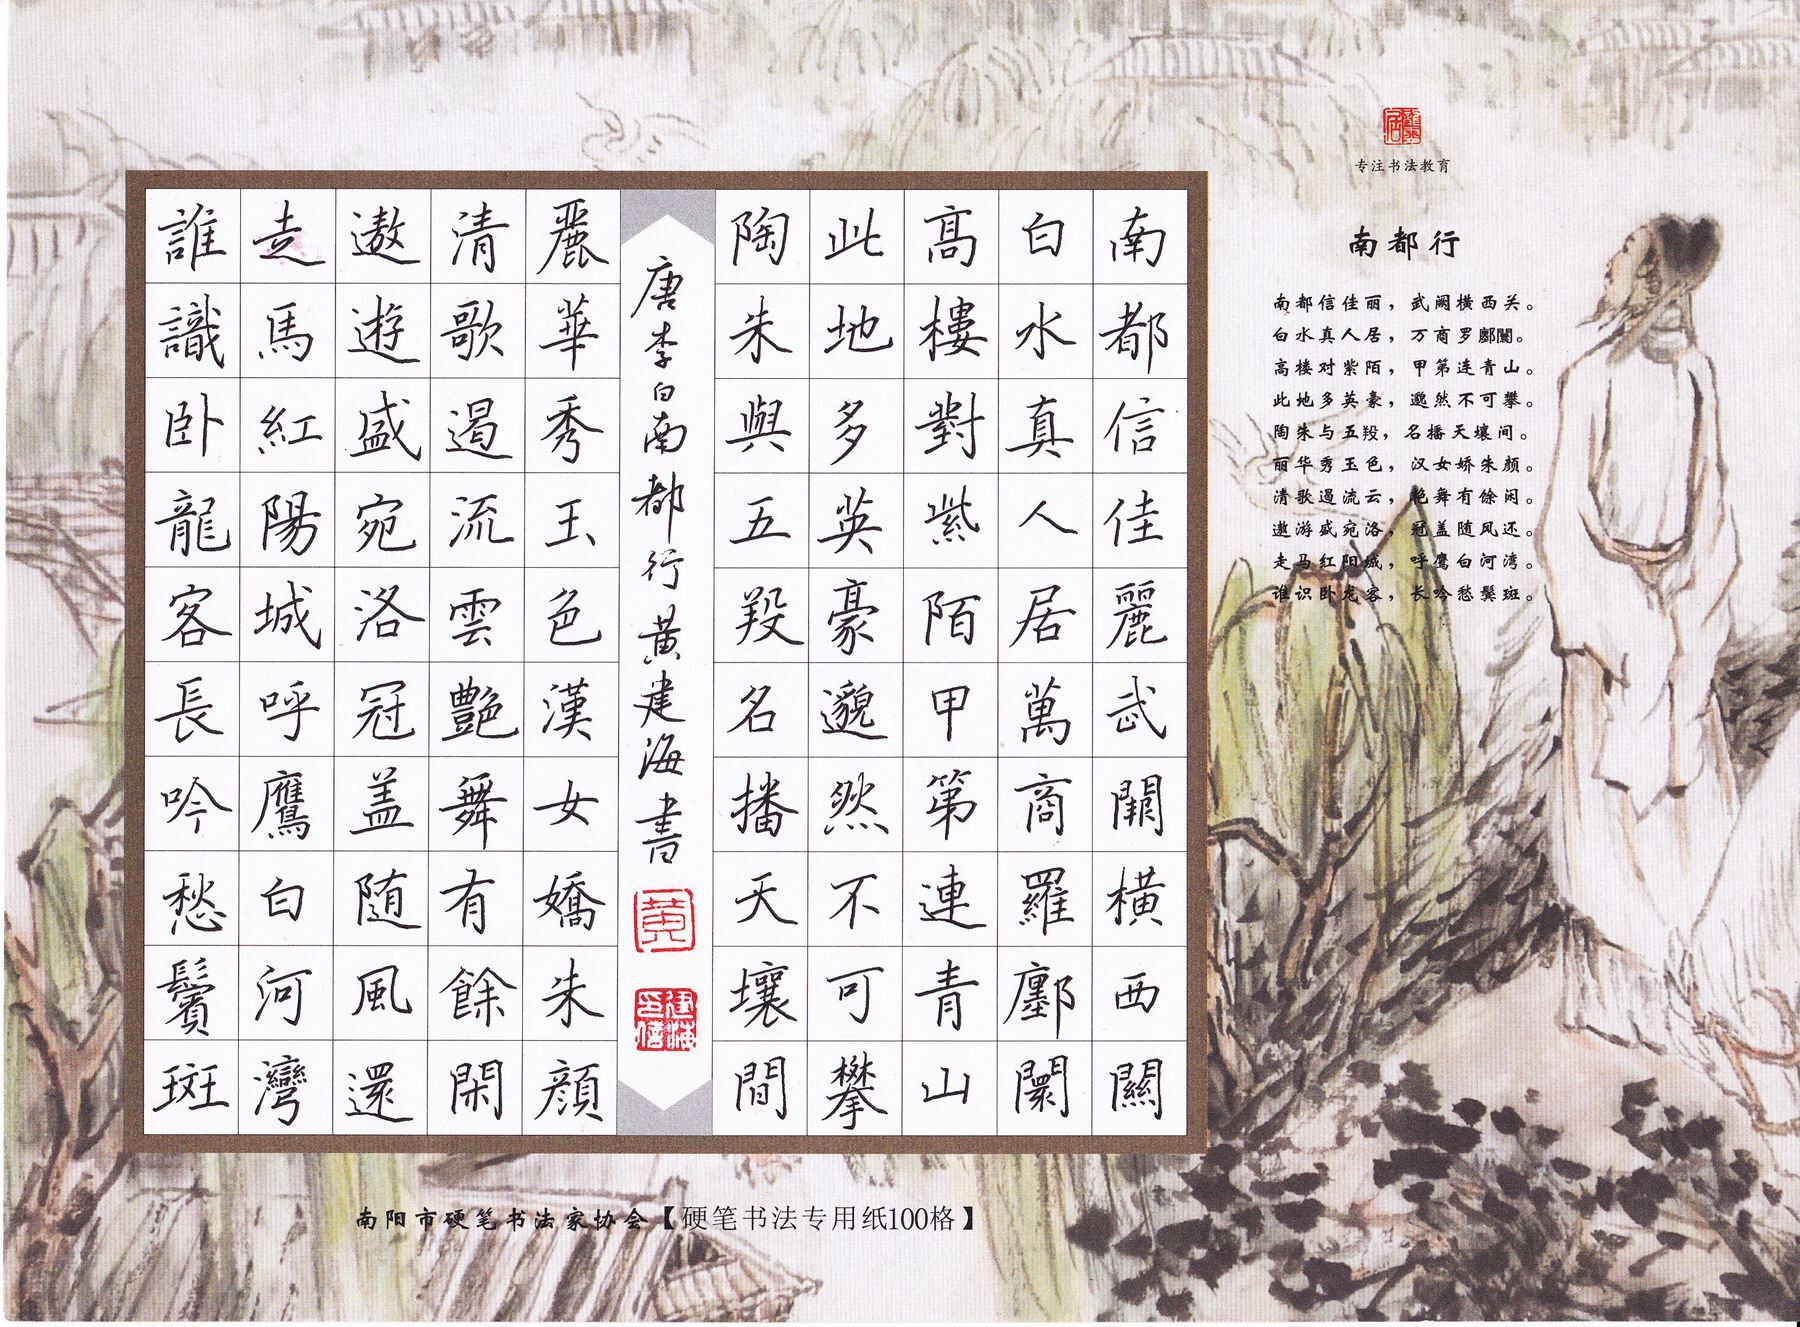 专注书法教育
南都行
南都信佳丽，武阙横西关。
白水真人居，万商罗鄽闤。
高楼对紫陌，甲第连青山。
此地多英豪，邈然不可攀。
陶朱与五羖，名播天壤间。
丽华秀玉色，汉女娇朱颜。
清歌遏流云，艳舞有馀闲。
遨游盛宛洛，冠盖随风还。
走马红阳城，呼鹰白河湾。
谁识卧龙客，长吟愁鬓斑。
南都信佳麗武闕橫西關
白水真人居萬商羅鄽闤
高樓對紫陌甲第連青山
此地多英豪邈然不可攀
陶朱與五羖名播天壤間
唐李白南都行黃建海書
黃
建海印信
麗華秀玉色漢女嬌朱顏
清歌遏流雲艷舞有餘閑
遨遊盛宛洛冠盖随風還
走馬紅陽城呼鷹白河灣
誰識卧龍客長吟愁鬢斑
南阳市硬笔书法家协会【硬笔书法专用纸100格】